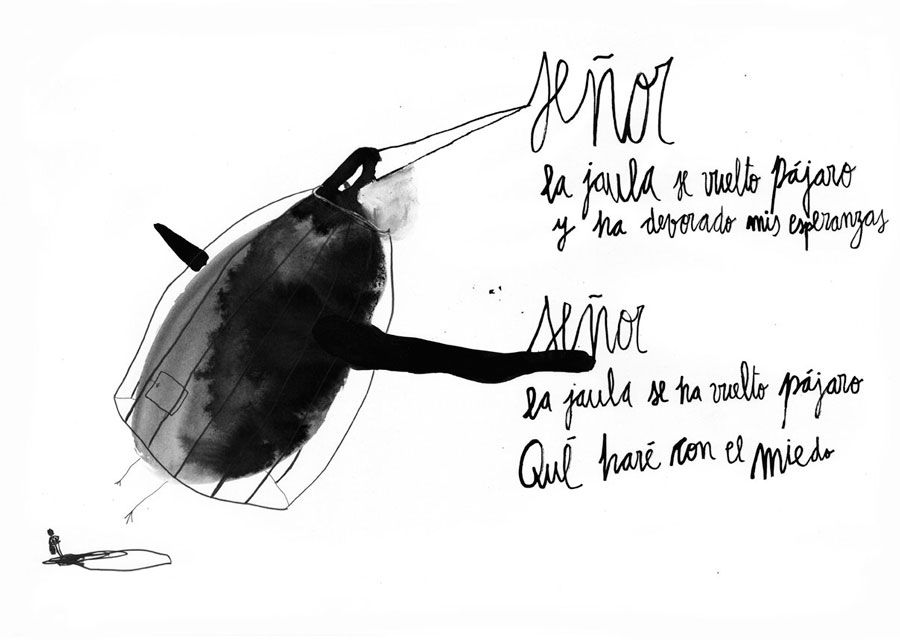 Señor
La jaula se vuelto pájaro
y ha devorado mis esperanzas
Señor
La jaula se ha vuelto pájaro
Qué haré con el miedo